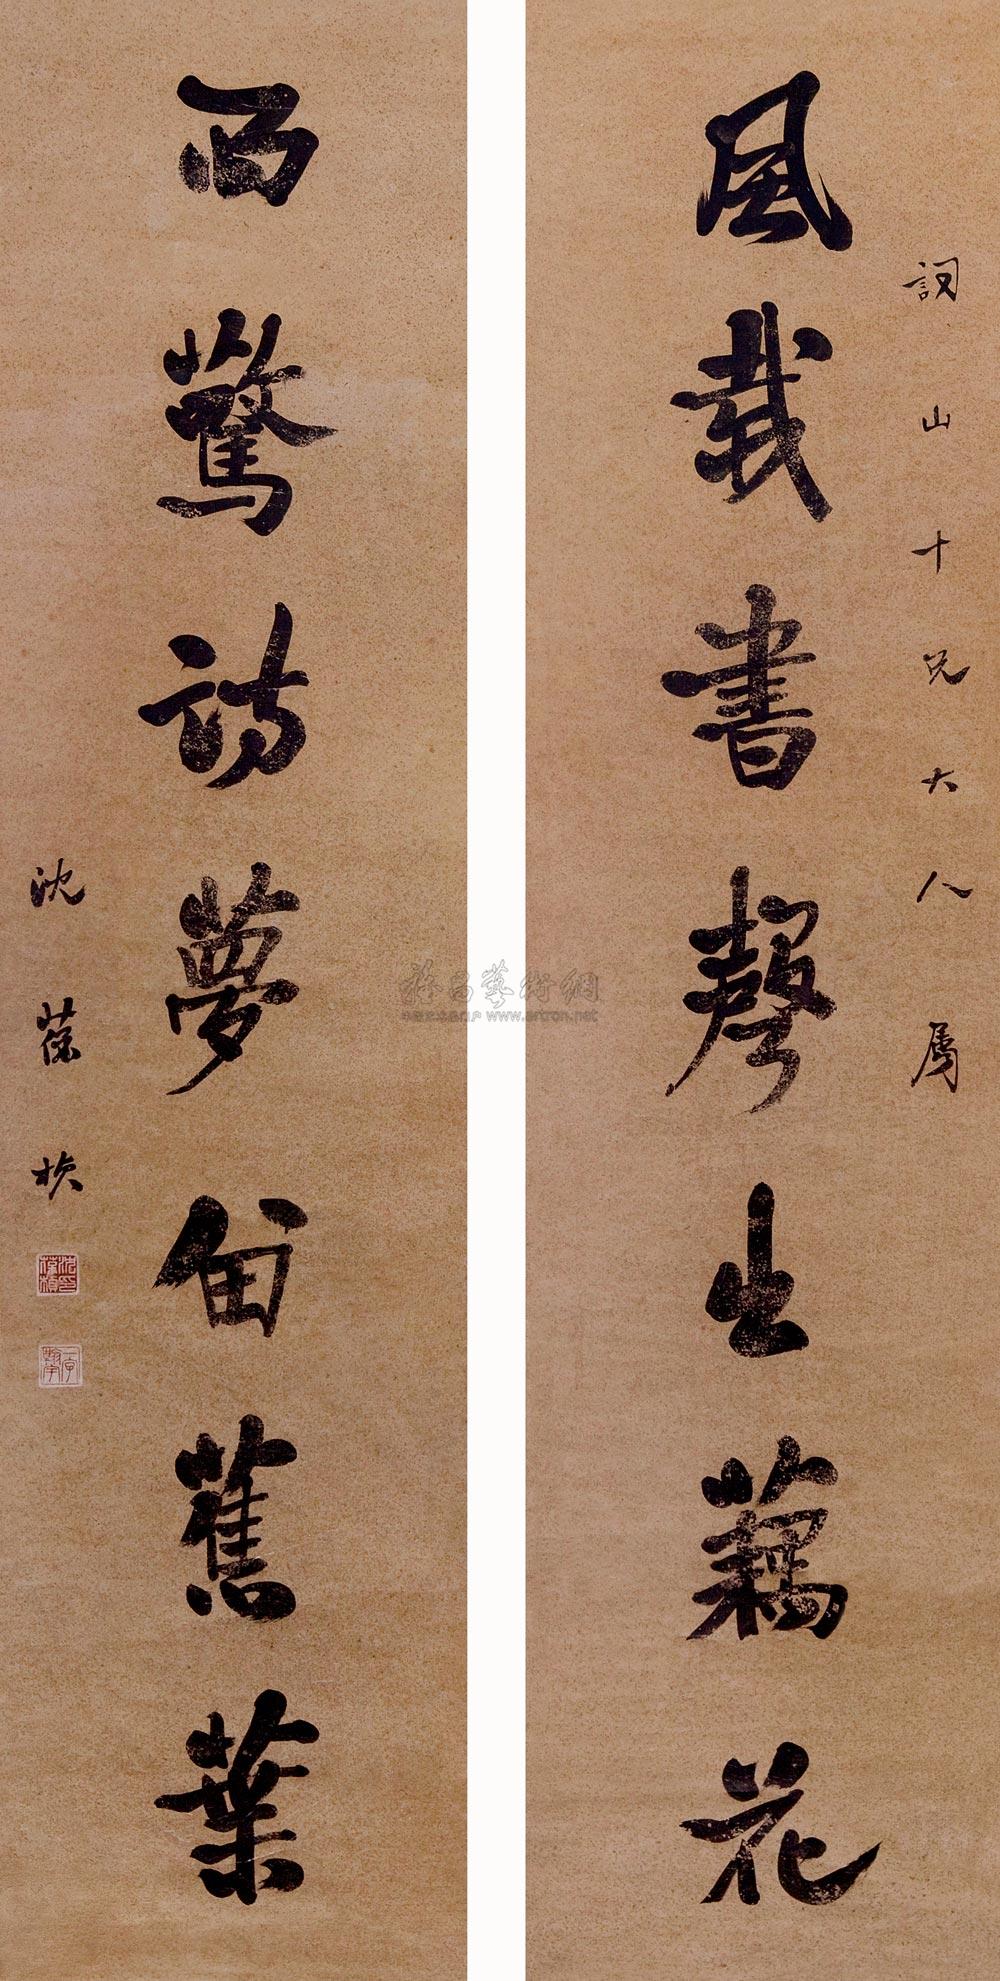 風載書聲出藕花
詞山十兄大人屬
雨驚詩夢留蕉葉
沈葆楨
沈印葆楨
一字翰宇
雅昌藝術網
www.artron.net